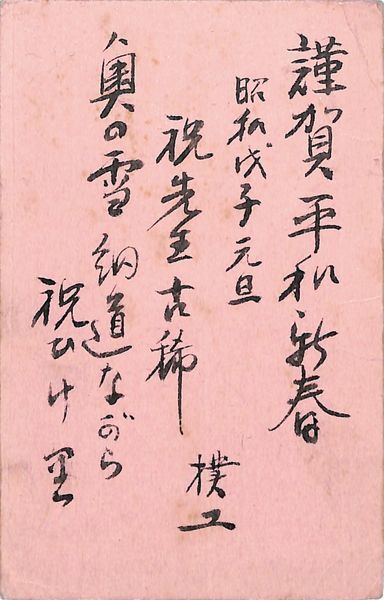 謹賀平和新春
昭和戊子元旦
祝先生古稀
樸工
奥の雪 細道ながら
祝ひけり